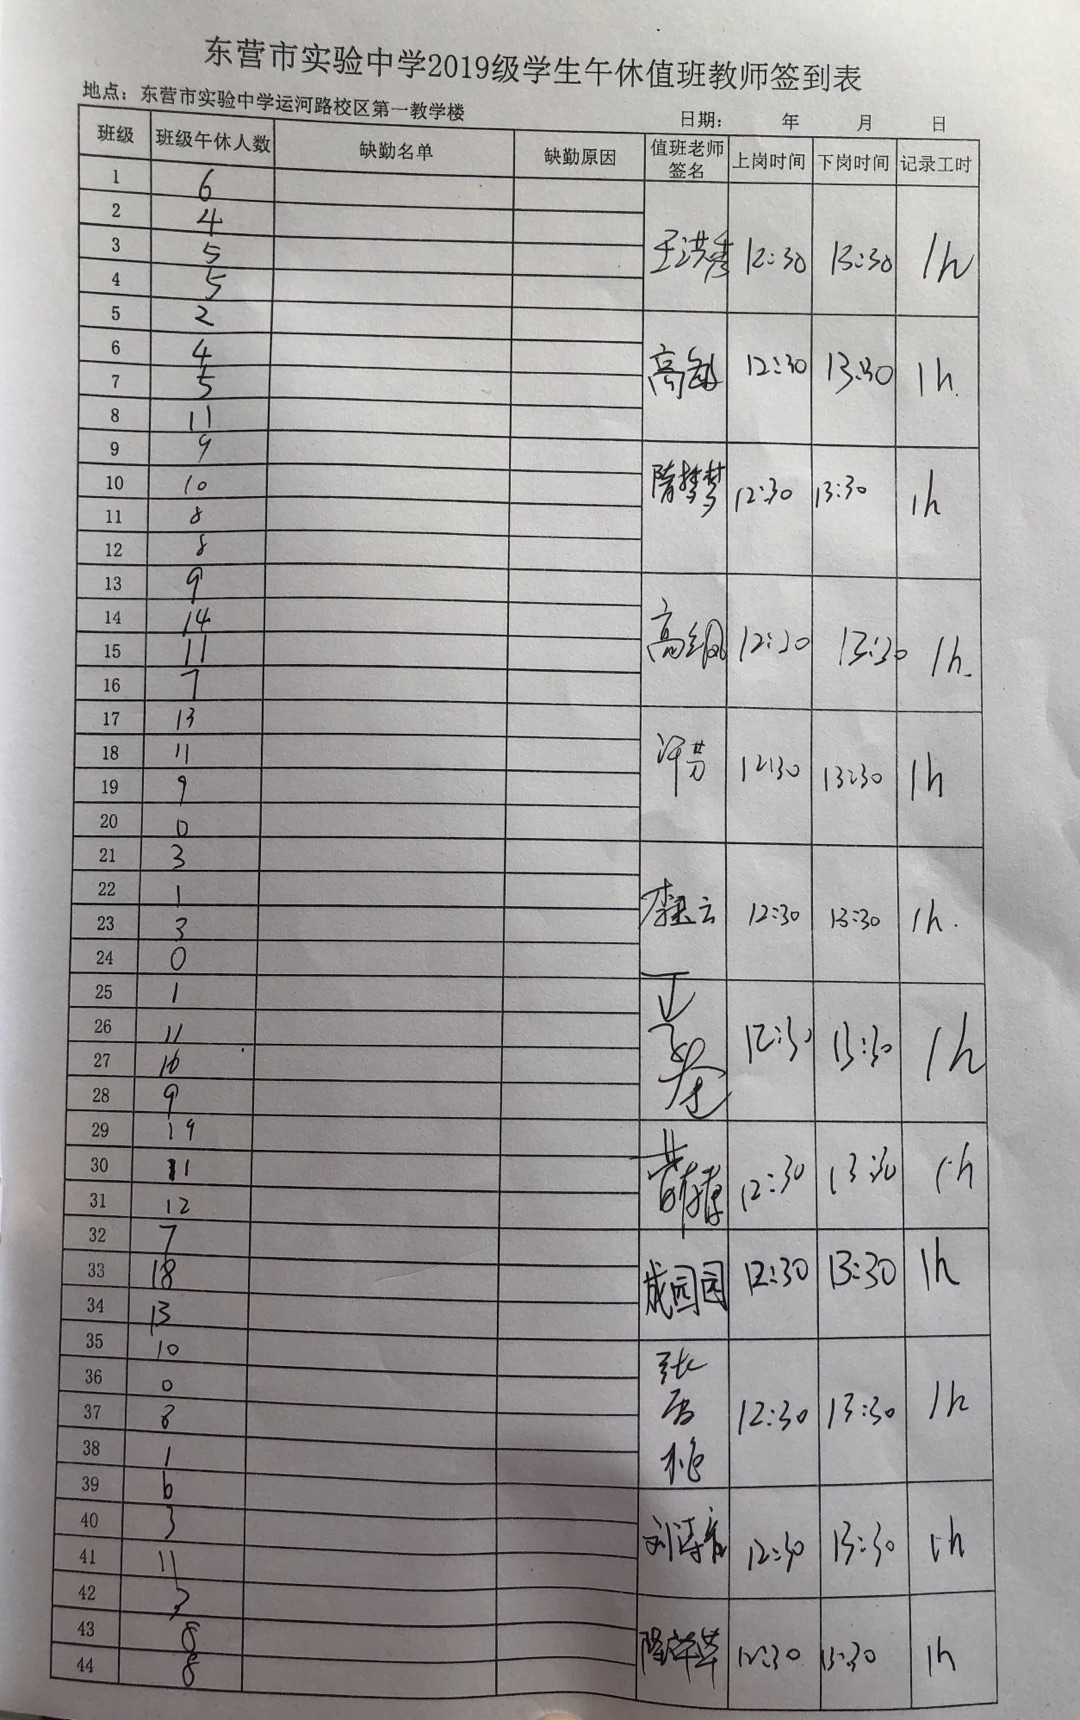 东营市实验中学2019级学生午休值班教师签到表
地点：东营市实验中学运河路校区第一教学楼 日期： 年 月 日
班级 班级午休人数 缺勤名单 缺勤原因 值班老师签名 上岗时间 下岗时间 记录工时
1 6
2 4
3 5 王洪秀 12:30 13:30 1h
4 5
5 2
6 4
7 5 高敏 12:30 13:30 1h.
8 11
9 9
10 10 隋梦梦 12:30 13:30 1h
11 8
12 8
13 9
14 14
15 11 12:30 13:30 1h.
16 7
17 13
18 11 许芳 12:30 13:30 1h
19 9
20 0
21 3
22 1
23 3 云 12:30 13:30 1h.
24 0
25 1
26 11 12:30 13:30 1h
27 10
28 9
29 19
30 11 12:30 13:30 1h
31 12
32 7
33 18 成园园 12:30 13:30 1h
34 13
35 10
36 0
37 8 张 12:30 13:30 1h
38 1
39 6
40 3
41 11 刘 12:30 13:30 1h
42
43 8 12:30 13:30 1h
44 8